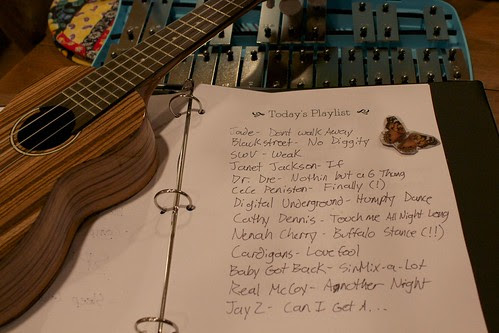 Today's Playlist
Jade - Dont walk Away
Blackstreet - No Diggity
SWV - Weak
Janet Jackson - If
Dr. Dre - Nothin but a G Thang
CeCe Peniston - Finally (!)
Digital Underground - Humpty Dance
Cathy Dennis - Touch me All Night Long
Nenah Cherry - Buffalo Stance (!!)
Cardigans - Lovefool
Baby Got Back - SirMix-a-Lot
Real McCoy - Another Night
Jay Z - Can I Get A...